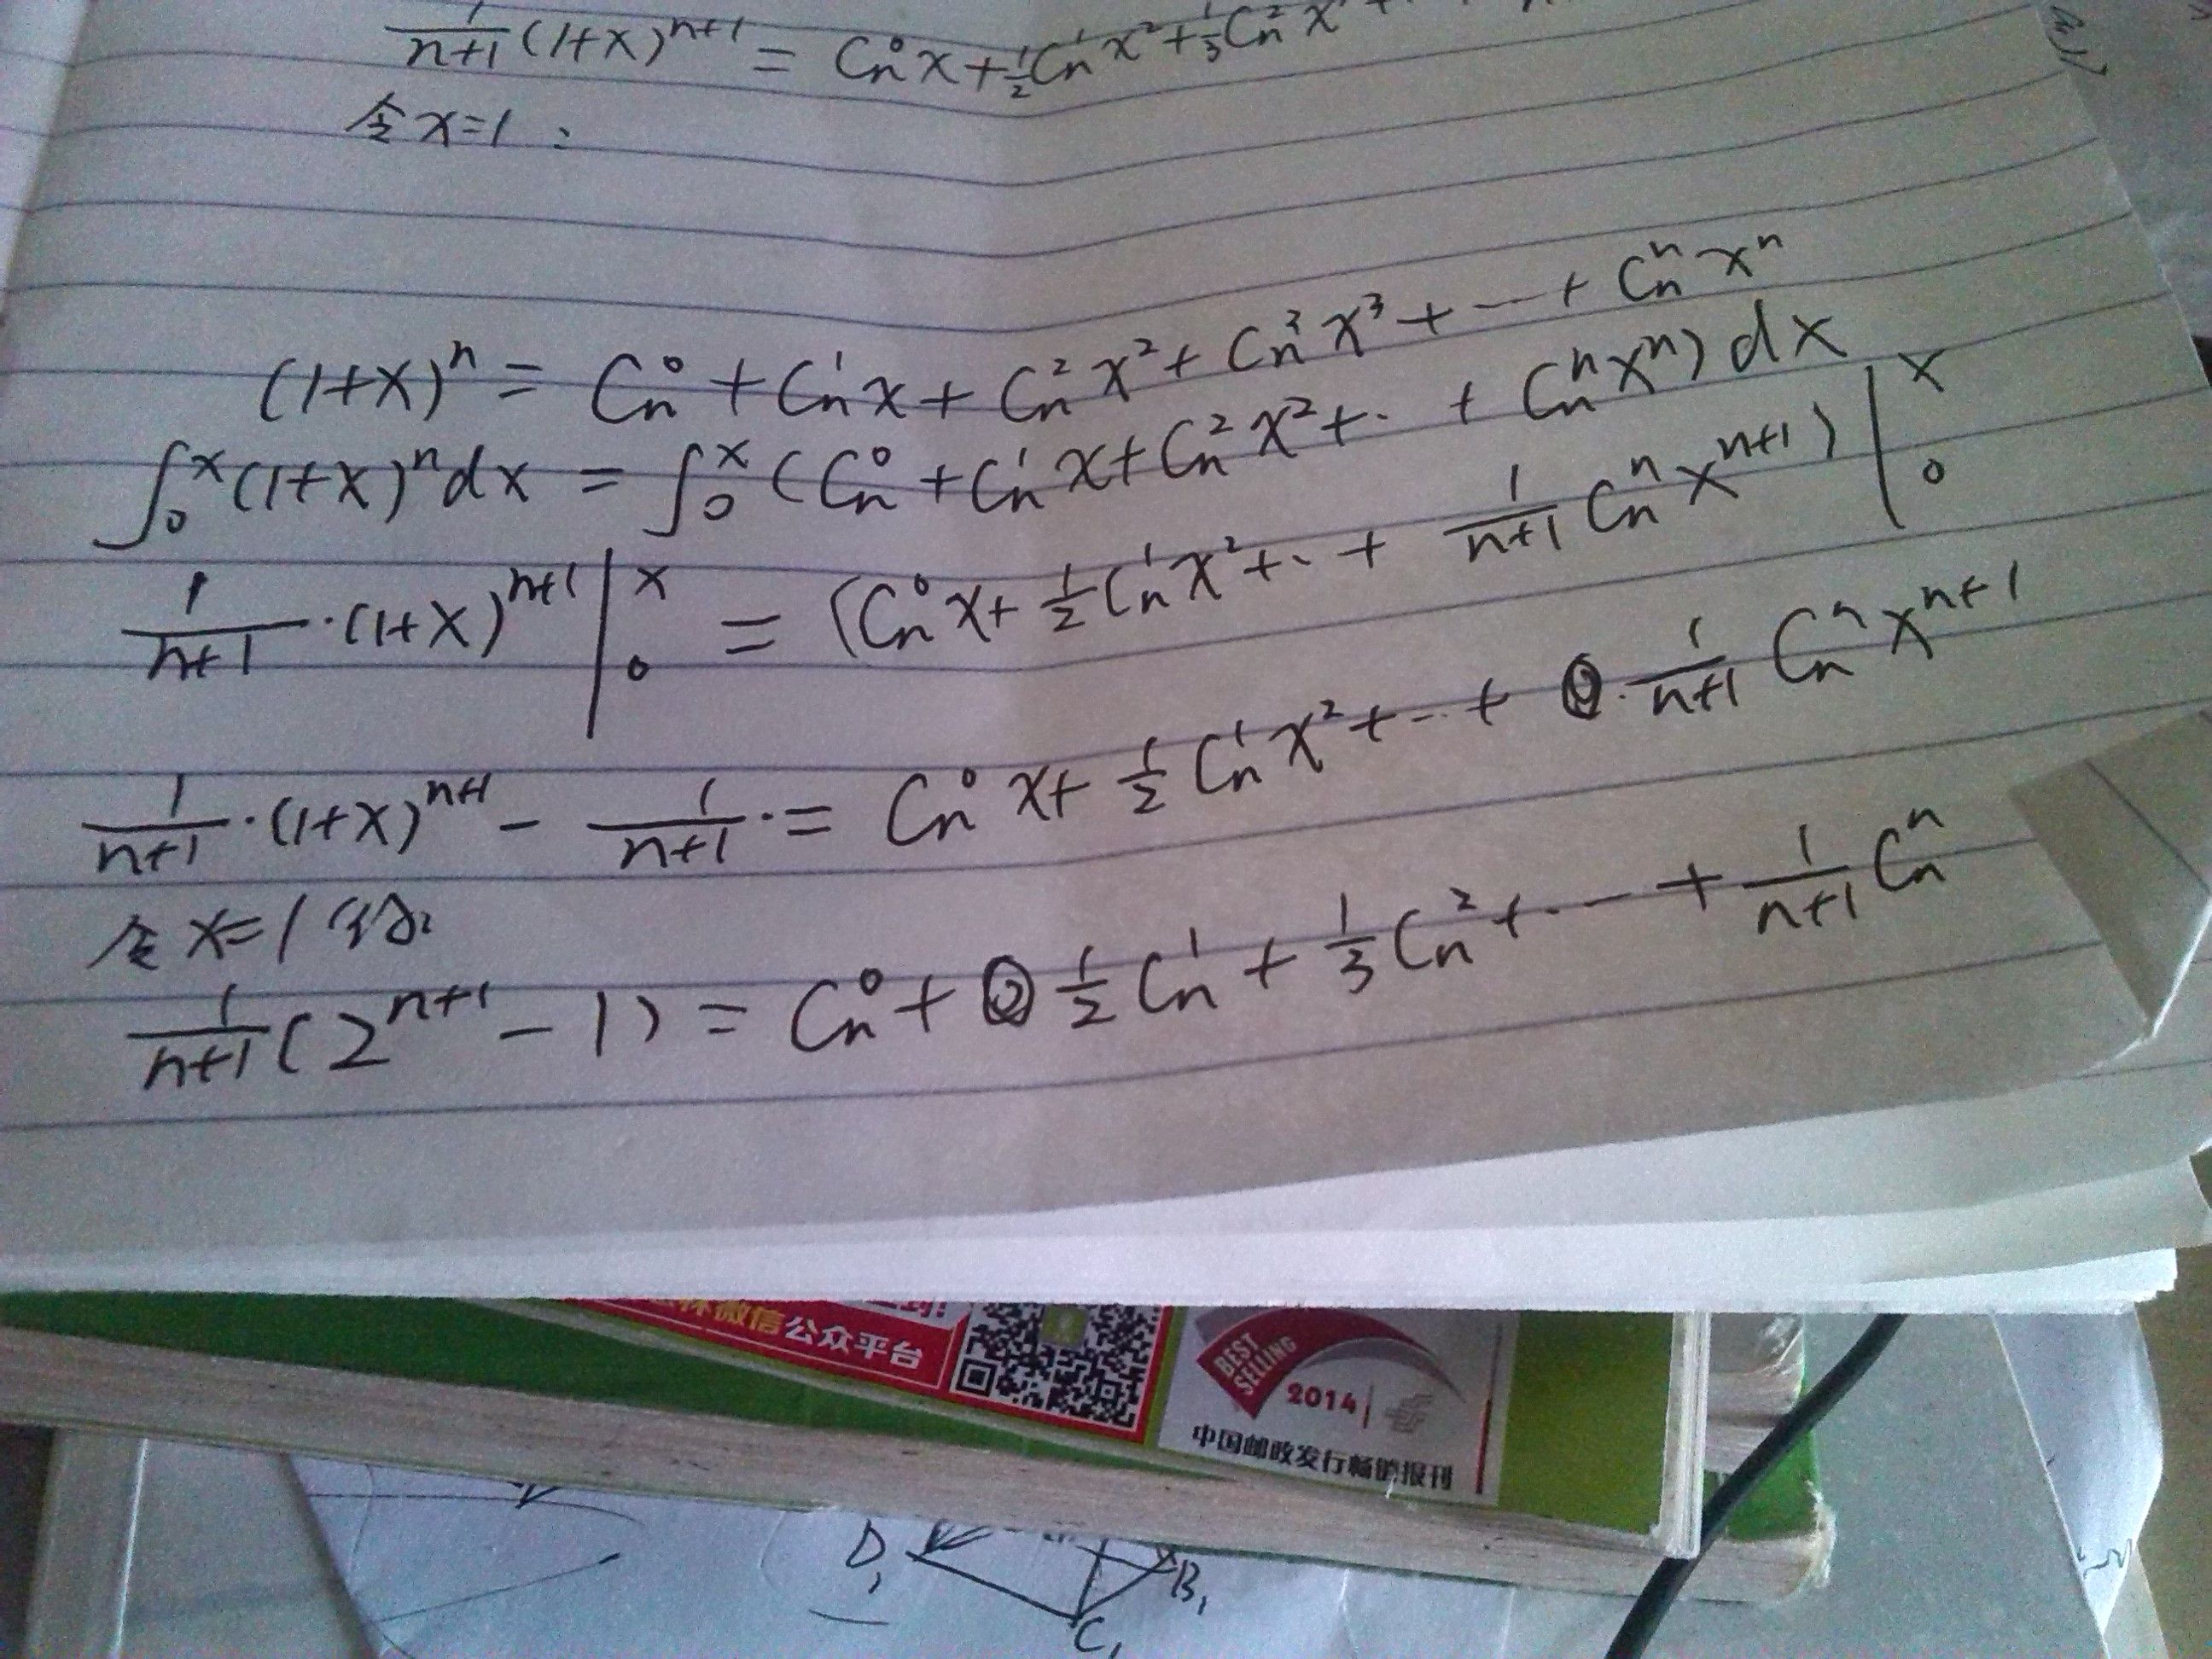 1/(n+1) (1+x)^{n+1} = C_n^0 x + 1/2 C_n^1 x^2 + 1/3 C_n^2 x
令 x=1:
(1+x)^n = C_n^0 + C_n^1 x + C_n^2 x^2 + C_n^3 x^3 + ⋯ + C_n^n x^n
∫_0^x (1+x)^n dx = ∫_0^x (C_n^0 + C_n^1 x + C_n^2 x^2 + ⋯ + C_n^n x^n) dx
1/(n+1) · (1+x)^{n+1} |_0^x = (C_n^0 x + 1/2 C_n^1 x^2 + ⋯ + 1/(n+1) C_n^n x^{n+1}) |_0^x
1/(n+1) · (1+x)^{n+1} − 1/(n+1) · = C_n^0 x + 1/2 C_n^1 x^2 + ⋯ + · 1/(n+1) C_n^n x^{n+1}
令 x=1 得:
1/(n+1) (2^{n+1} − 1) = C_n^0 + 1/2 C_n^1 + 1/3 C_n^2 + ⋯ + 1/(n+1) C_n^n
微信公众平台
BEST
SELLING
2014
中国邮政发行畅销报刊
D_1
B_1
C_1